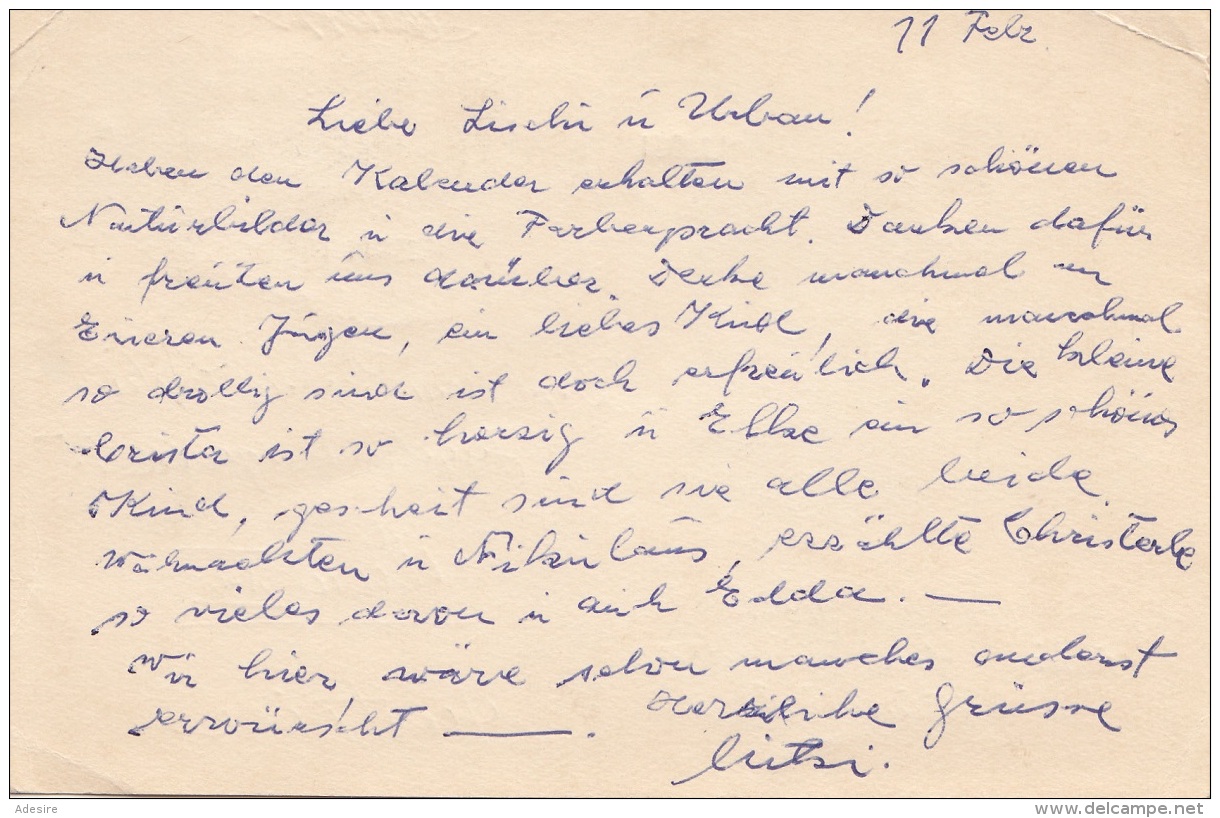 11 Febr.
Liebe Lischi ü Urban!
Haben den Kalender erhalten mit so schönen
Natürbilder ü die Farbenpracht. Danken dafür
ü freuten üns darüber. Denke manchmal an
Eueren Jungen, ein liebes Kind, die manchmal
so drollig sind ist doch erfreülich. Die kleine
Crista ist so herzig ü Elke ein so schönes
Kind, gescheit sind sie alle beide.
Weihnachten ü Nikulaus, erzählte Christerle
so vieles davon ü auch Edda. —
Wir hier, wäre schon manches anderst
erwünscht —. Herzliche Grüsse
Mitzi.
Adesire
www.delcampe.net